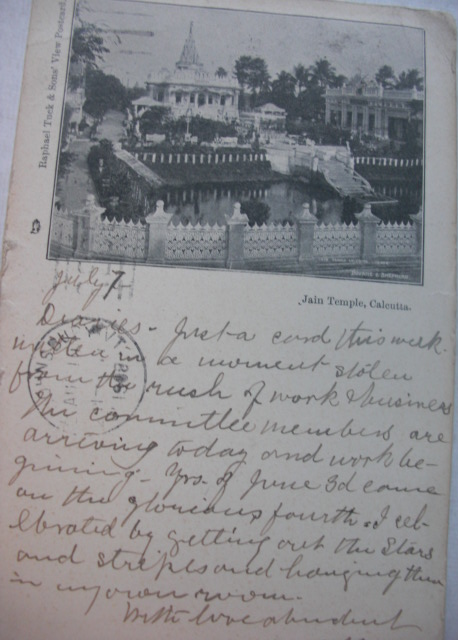 Raphael Tuck & Sons' View Postcard.
Jain Temple, Calcutta.
July 7
Dearies - Just a card this week.
written in a moment stolen
from the rush of work & business
The committee members are
arriving today and work be-
gining - Yrs. of June 3d came
on the glorious fourth. I cel-
ebrated by getting out the Stars
and stripes and hanging them
in my own room.
With love abundant